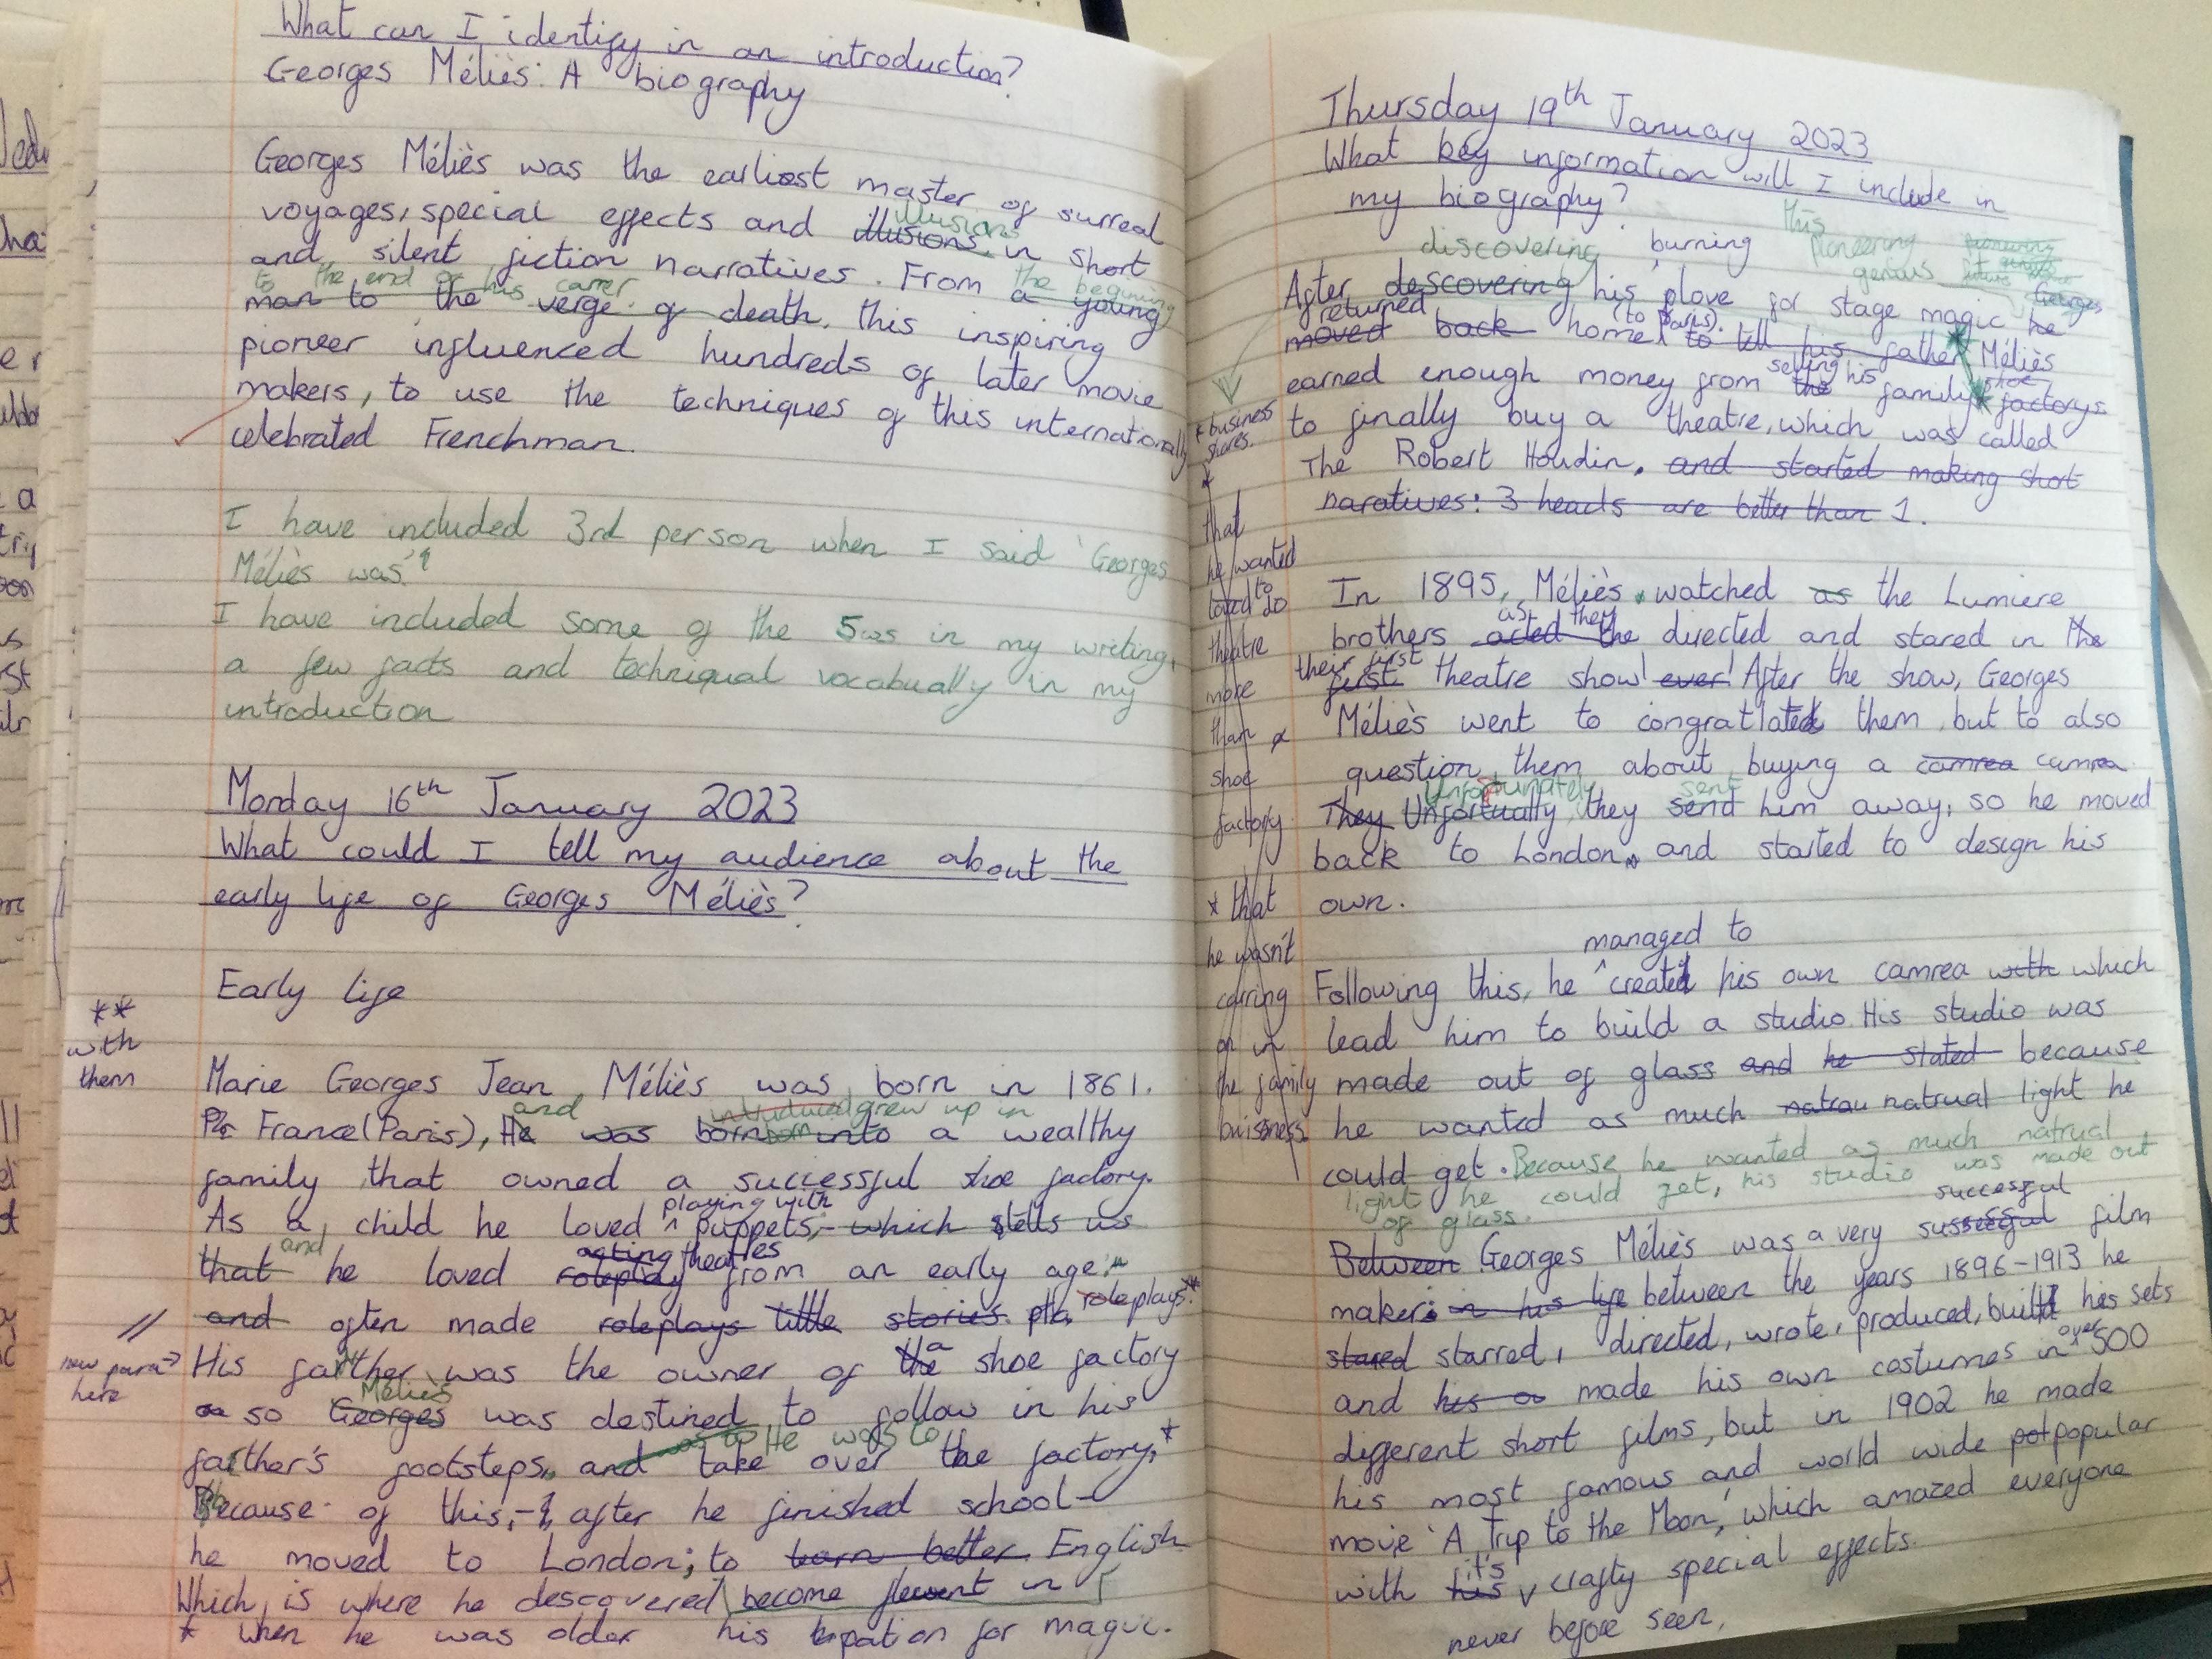 What can I identify in an introduction?
Georges Méliès: A biography
Georges Méliès was the earliest master of surreal
voyages, special effects and illusions illusions in short
and silent fiction narratives. From a young the begining
man to the verge of death, to the end of his carrer this inspiring
pioneer influenced hundreds of later movie
makers, to use the techniques of this internationally
celebrated Frenchman.
I have included 3rd person when I said 'Georges
Méliès was'
I have included some of the 5ws in my writing,
a few facts and techniqual vocabually in my
introduction
Monday 16th January 2023
What could I tell my audience about the
early life of Georges Méliès?
Early life
**
with
them
Marie Georges Jean Méliès was born in 1861.
France (Paris), He and was born into introduced grew up in a wealthy
family that owned a successful shoe factory.
As a child he loved playing with puppets, which tells us
that and he loved roleplay acting theatres from an early age
and often made roleplays little stories roleplays**
//
new para→
here
His farther was the owner of the a shoe factory
so Georges Méliès was destined to follow in his
farther's footsteps, and He was to take over the factory,*
Because of this, - after he finished school -
he moved to London; to learn better English
Which is where he descovered become fluent in
* when he was older his pation for magic.
Thursday 19th January 2023
What key information will I include in
my biography?
discovering burning this pioneering genius
After descovering his love for stage magic he Georges
moved returned back home (to Paris). to tell his father Méliès
earned enough money from the selling his family shoe factorys
* business
shares.
to finally buy a theatre, which was called
The Robert Houdin. and started making short
naratives: 3 heads are better than 1.
*
that
he wanted
loved to do
theatre
more
than a
shoe
factory
* that
he wasn't
carring
on in
the family
buisness
In 1895, Méliès watched as the Lumiere
brothers acted the as they directed and stared in the
first their first theatre show! ever! After the show, Georges
Méliès went to congratlated them but to also
question them about buying a camrea camra
They Unfortually Unfortunately they send sent him away, so he moved
back to London, and started to design his
own.
managed to
Following this, he created his own camrea with which
lead him to build a studio. His studio was
made out of glass and he stated because
he wanted as much natrau natrual light he
could get. Because he wanted as much natrual
light he could get, his studio was made out
of glass.
Between Georges Méliès was a very sussesful successful film
maker: in his life between the years 1896-1913 he
stared starred, directed, wrote, produced, build his sets
and his co made his own costumes in over 500
different short films, but in 1902 he made
his most famous and world wide pot popular
movie 'A Trip to the Moon', which amazed everyone
with his it's crafty special effects.
never before seen,